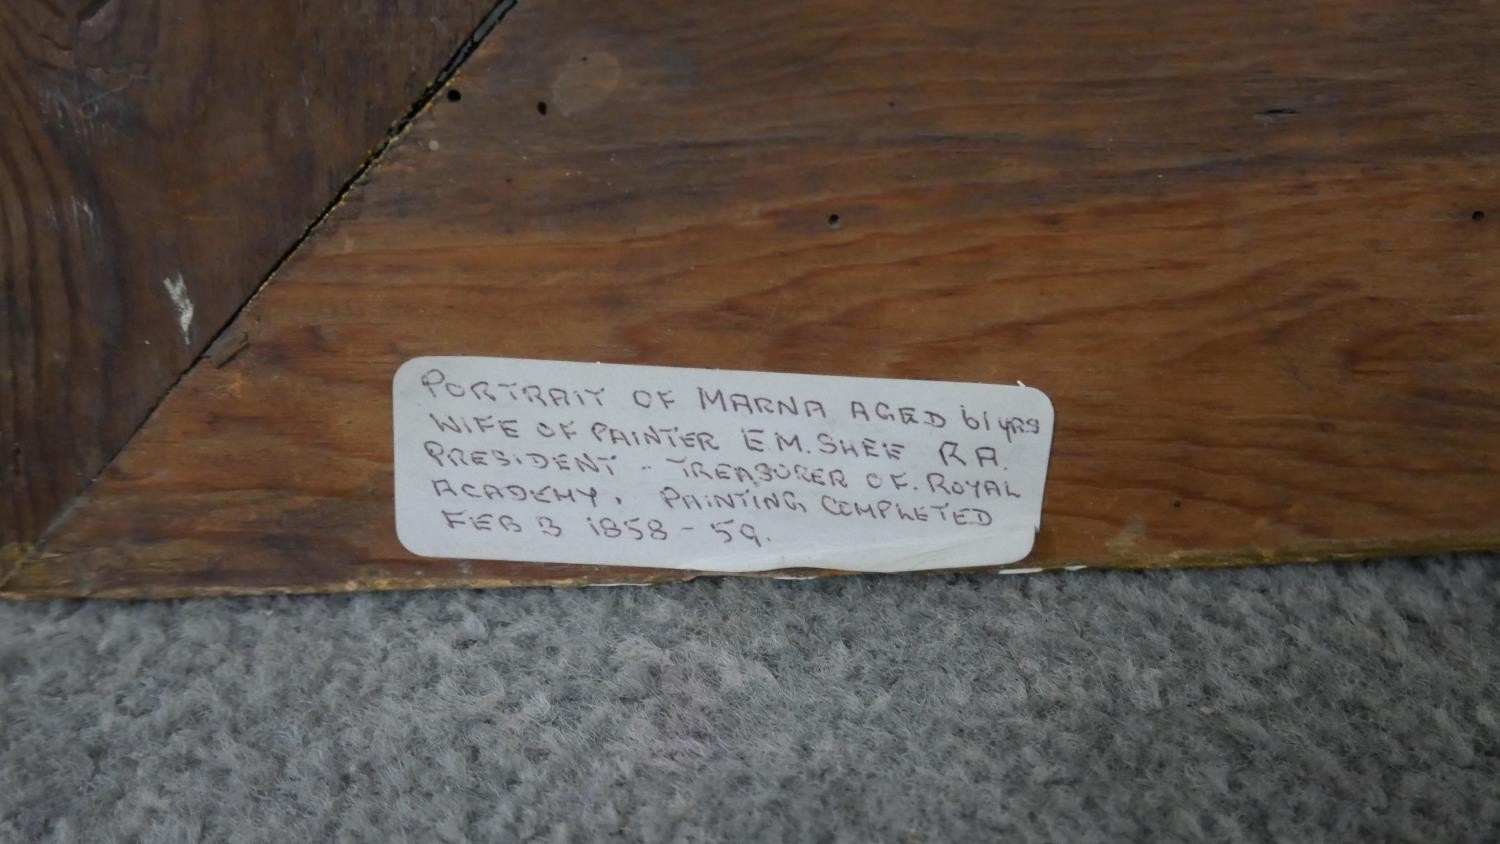 PORTRAIT OF MARNA AGED 61 YRS
WIFE OF PAINTER E M. SHEE RA.
PRESIDENT - TREASURER OF. ROYAL
ACADEMY. PAINTING COMPLETED
FEB 3 1858 - 59.